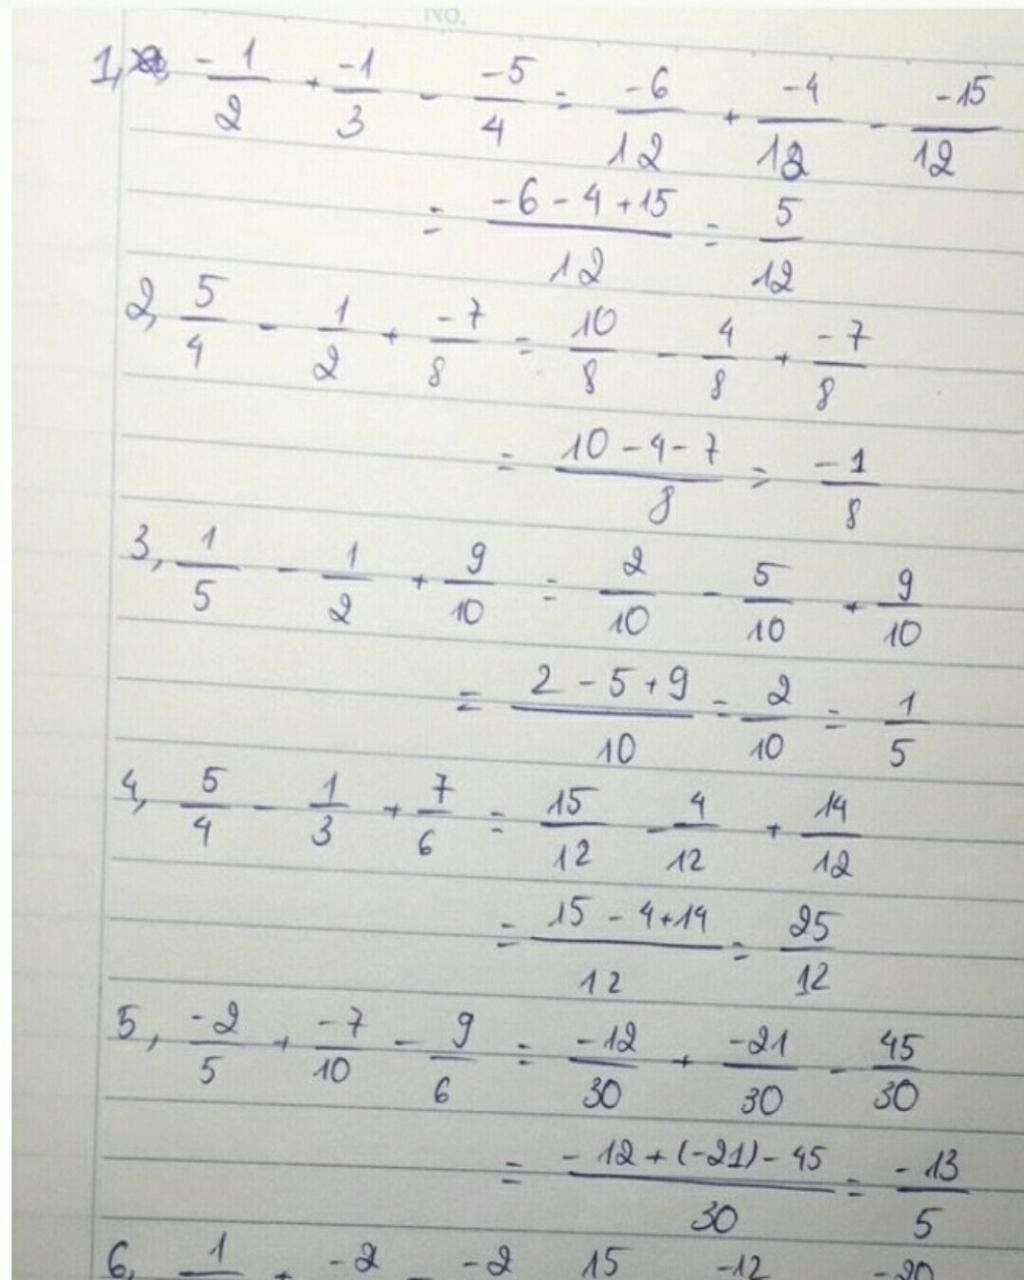 No.
1, -1/2 + -1/3 - -5/4 = -6/12 + -4/12 - -15/12
= -6-4+15/12 = 5/12
2, 5/4 - 1/2 + -7/8 = 10/8 - 4/8 + -7/8
= 10-4-7/8 = -1/8
3, 1/5 - 1/2 + 9/10 = 2/10 - 5/10 + 9/10
= 2-5+9/10 = 2/10 = 1/5
4, 5/4 - 1/3 + 7/6 = 15/12 - 4/12 + 14/12
= 15-4+14/12 = 25/12
5, -2/5 + -7/10 - 9/6 = -12/30 + -21/30 - 45/30
= -12+(-21)-45/30 = -13/5
6, 1 + -2 - -2 15 -12 -20